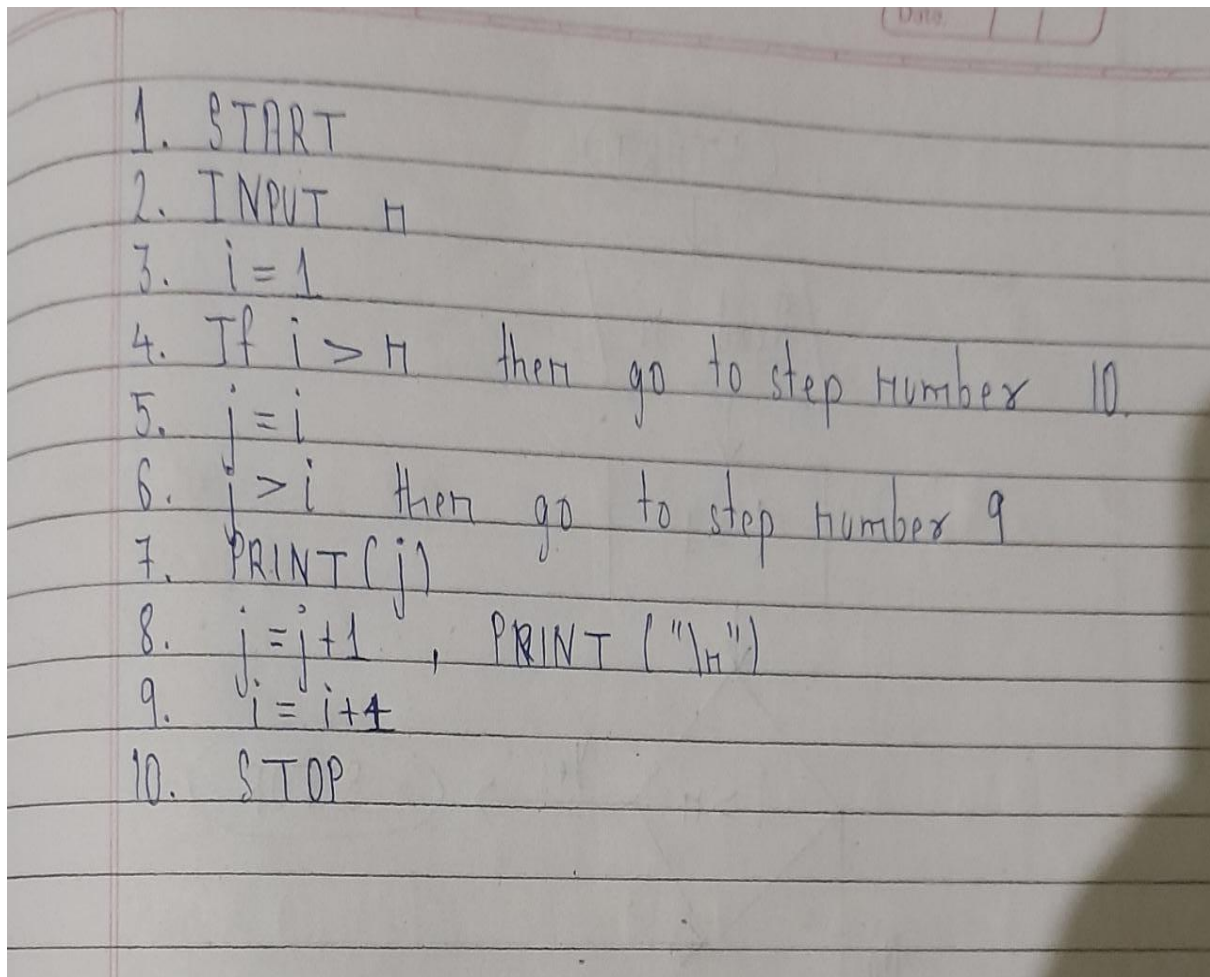 Date
1. START
2. INPUT n
3. i = 1
4. If i > n then go to step number 10.
5. j = i
6. j > i then go to step number 9
7. PRINT (j)
8. j = j+1 , PRINT ("\n")
9. i = i+1
10. STOP